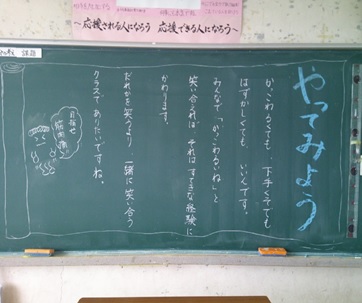 ～ 応援される人になろう 応援できる人になろう ～
やってみよう
かっこわるくても、下手くそでも
はずかしくても、いいんです。
みんなで「かっこわるいね」と
笑い合えれば、それはすてきな経験に
かわります。
だれかを笑うより、一緒に笑い合う
クラスでありたいですね。
目指せ
筋肉痛!!